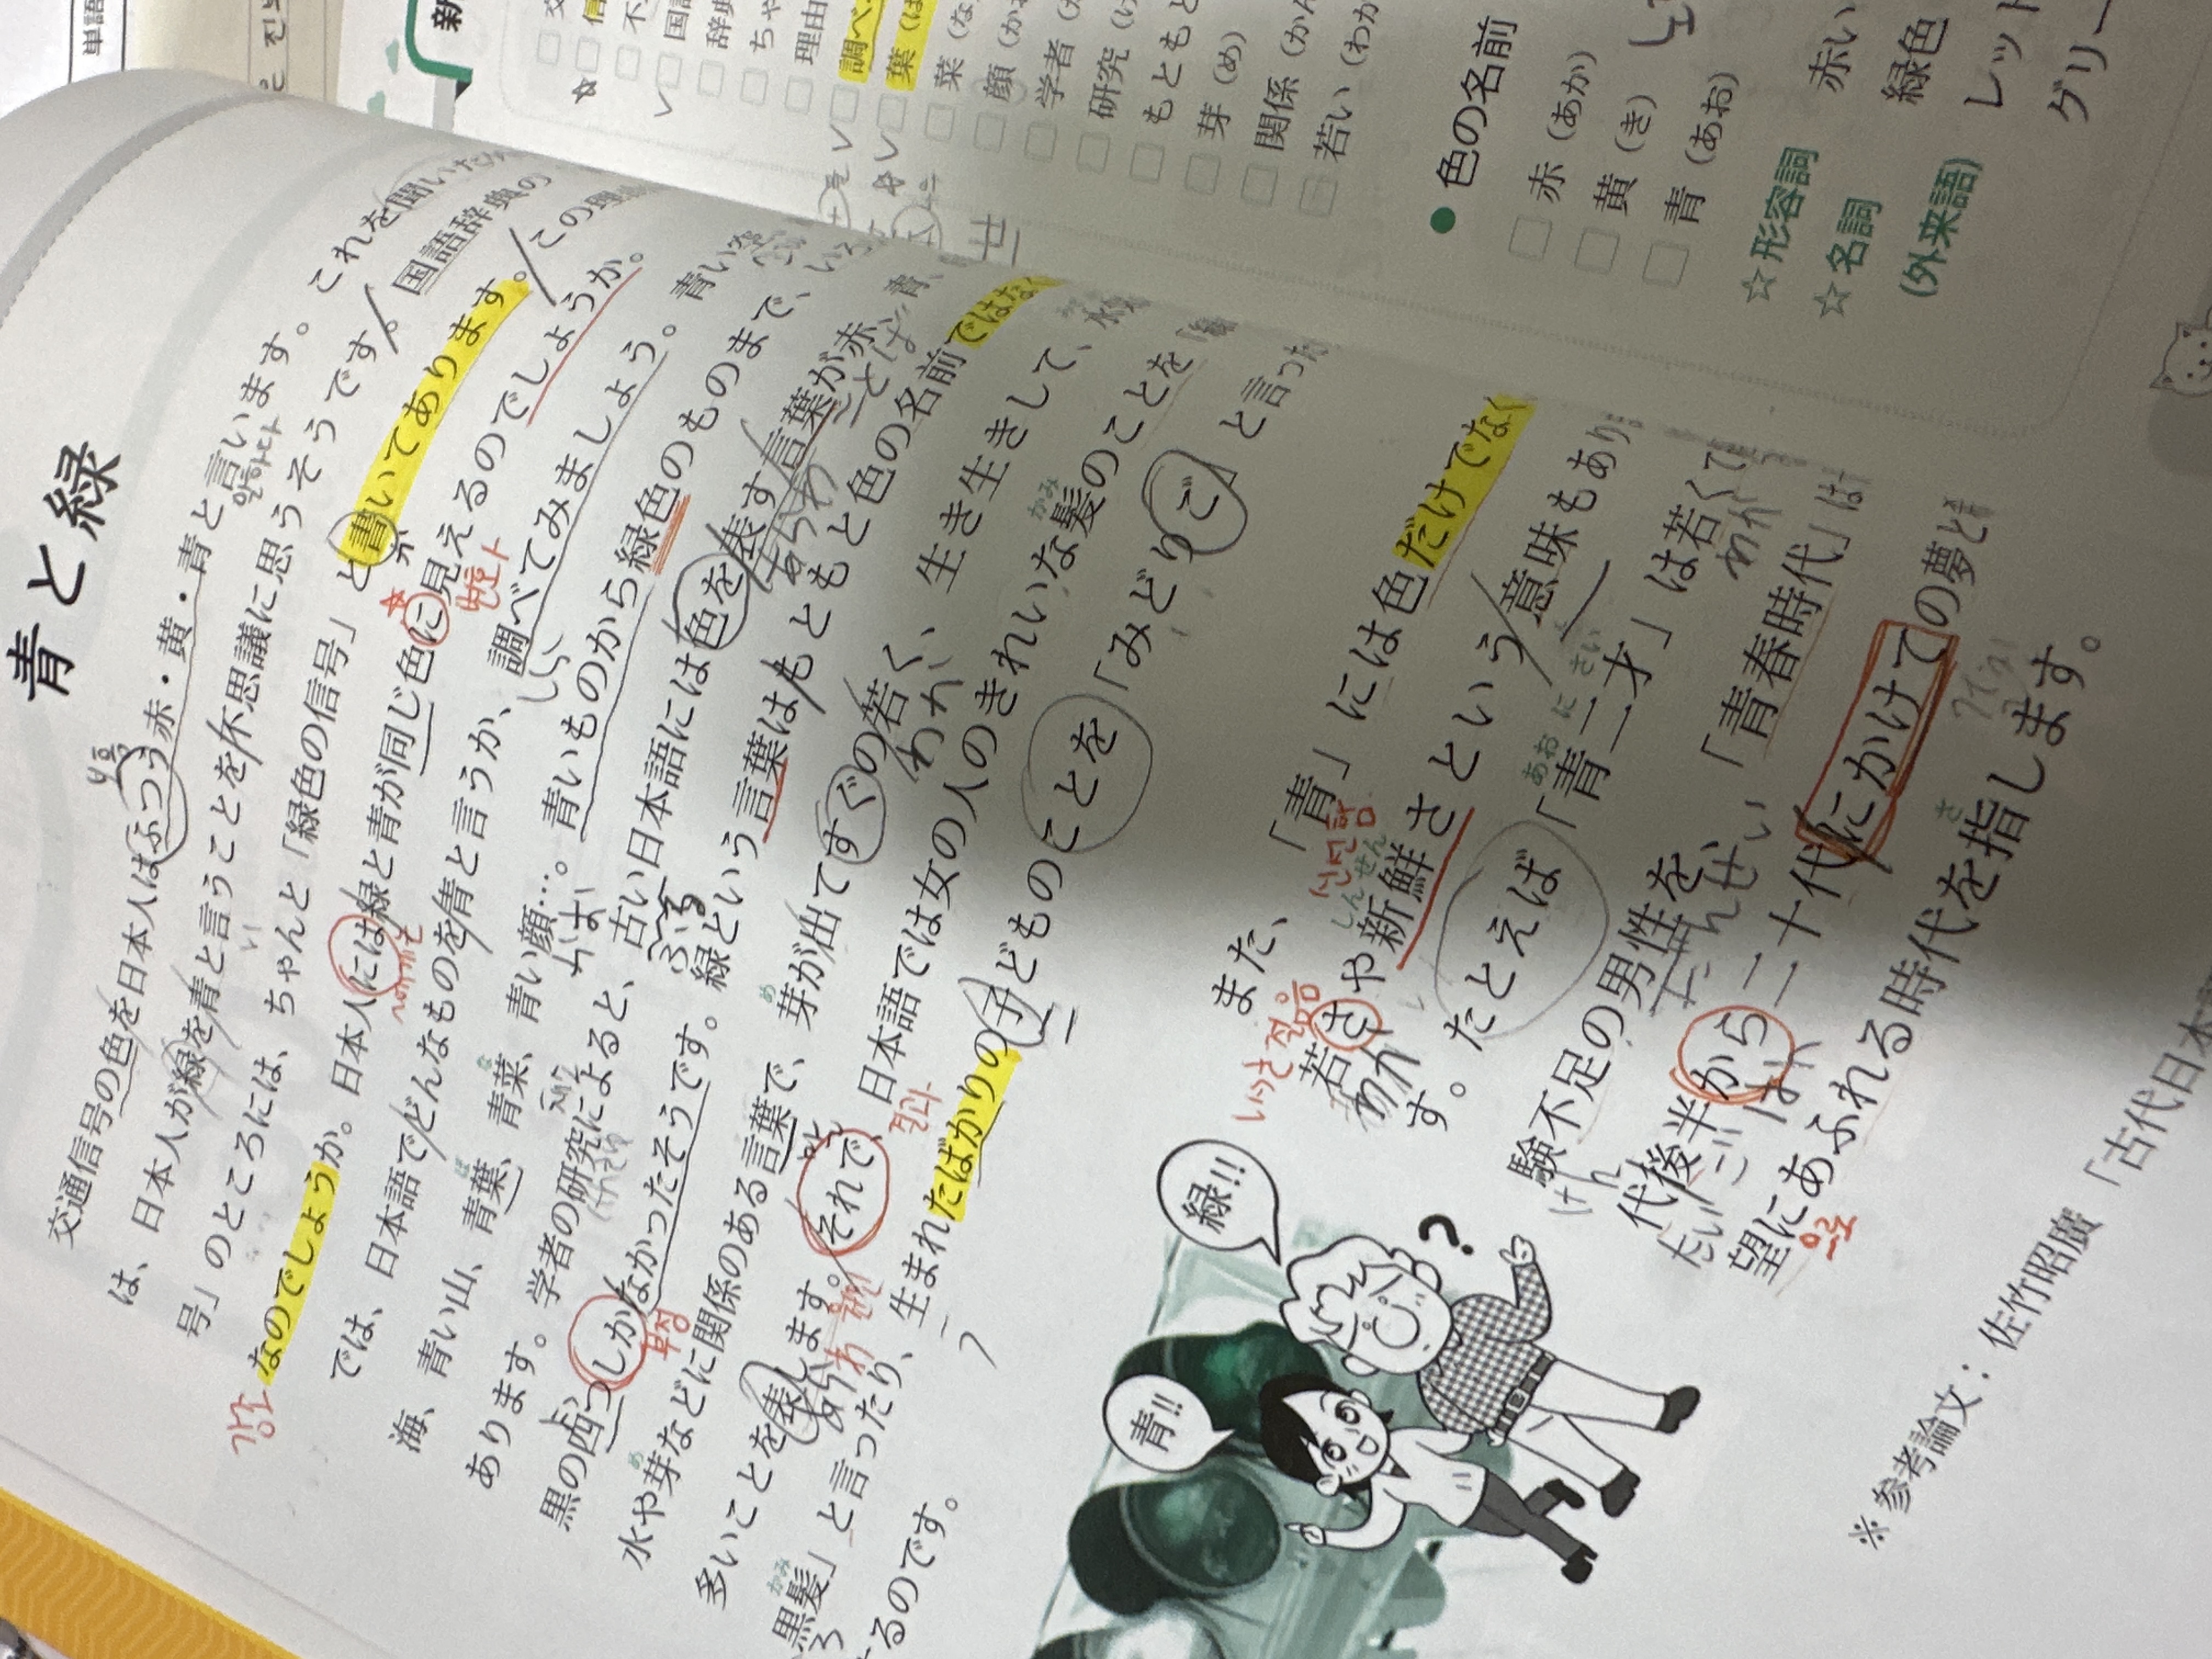 青と緑
交通信号の色を日本人はふつう赤・黄・青と言います。これを聞いた
は、日本人が緑を青と言うことを不思議に思うそうです。国語辞典の
号」のところには、ちゃんと「緑色の信号」と書いてあります。この理
なのでしょうか。日本人には緑と青が同じ色に見えるのでしょうか。
では、日本語でどんなものを青と言うか、調べてみましょう。青い空
海、青い山、青葉、青菜、青い顔…。青いものから緑色のものまで、いろ
あります。学者の研究によると、古い日本語には色を表す言葉が赤、青、
黒の四つしかなかったそうです。緑という言葉はもともと色の名前ではなく
水や芽などに関係のある言葉で、芽が出てすぐの若く、生き生きして、水
多いことを表します。それで、日本語では女の人のきれいな髪のことを「緑
黒髪」と言ったり、生まれたばかりの子どものことを「みどりご」と言った
するのです。
また、「青」には色だけでなく
若さや新鮮さという意味もあり
す。たとえば「青二才」は若くて
験不足の男性を、「青春時代」は
代後半から二十代にかけての夢と
望にあふれる時代を指します。
※ 参考論文：佐竹昭廣「古代日本
緑!!
青!!
?
ふつう
보통
말하다
い
강조
에게는
변화
しら
な
ば
かお
ふる
あらわ
ことば
よっ
부정
め
わか
かみ
あらわ
젊음
신선함
しんせん
わか
あお に さい
けん
だんせい
だい
ごはん
さ
으로
単語
新
☐ 国語
☐ 辞典
☐ ちゃ
☐ 理由
☐ 調べ
☐ 葉 (は
☐ 菜 (な
☐ 顔 (かお
☐ 学者 (が
☐ 研究 (け
☐ もともと
☐ 芽 (め)
☐ 関係 (かん
☐ 若い (わか
● 色の名前
☐ 赤 (あか)
☐ 黄 (き)
☐ 青 (あお)
☆形容詞 赤い
☆名詞 緑色
(外来語) レット
グリー